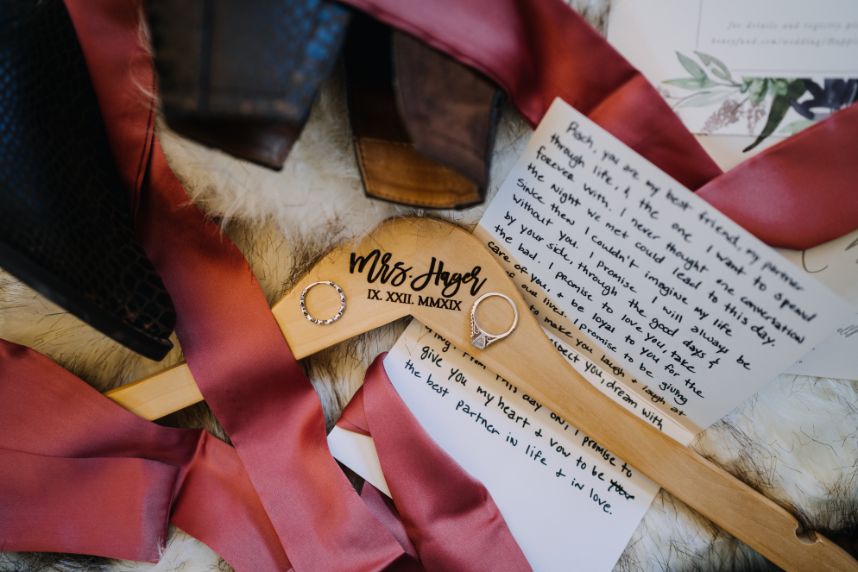 for details and registry
Mrs. Hager
IX. XXII. MMXIX
Poch, you are my best friend, my partner
through life, & the one I want to spend
forever with. I never thought one conversation
the night we met could lead to this day.
Since then I couldn't imagine my life
without you. I promise I will always be
by your side, through the good days &
the bad. I promise to love you, take
care of you, & be loyal to you for the
our lives. I promise to be giving
to make you laugh & laugh at
respect you, dream with
this day on, I promise to
give you my heart & vow to be your
the best partner in life & in love.